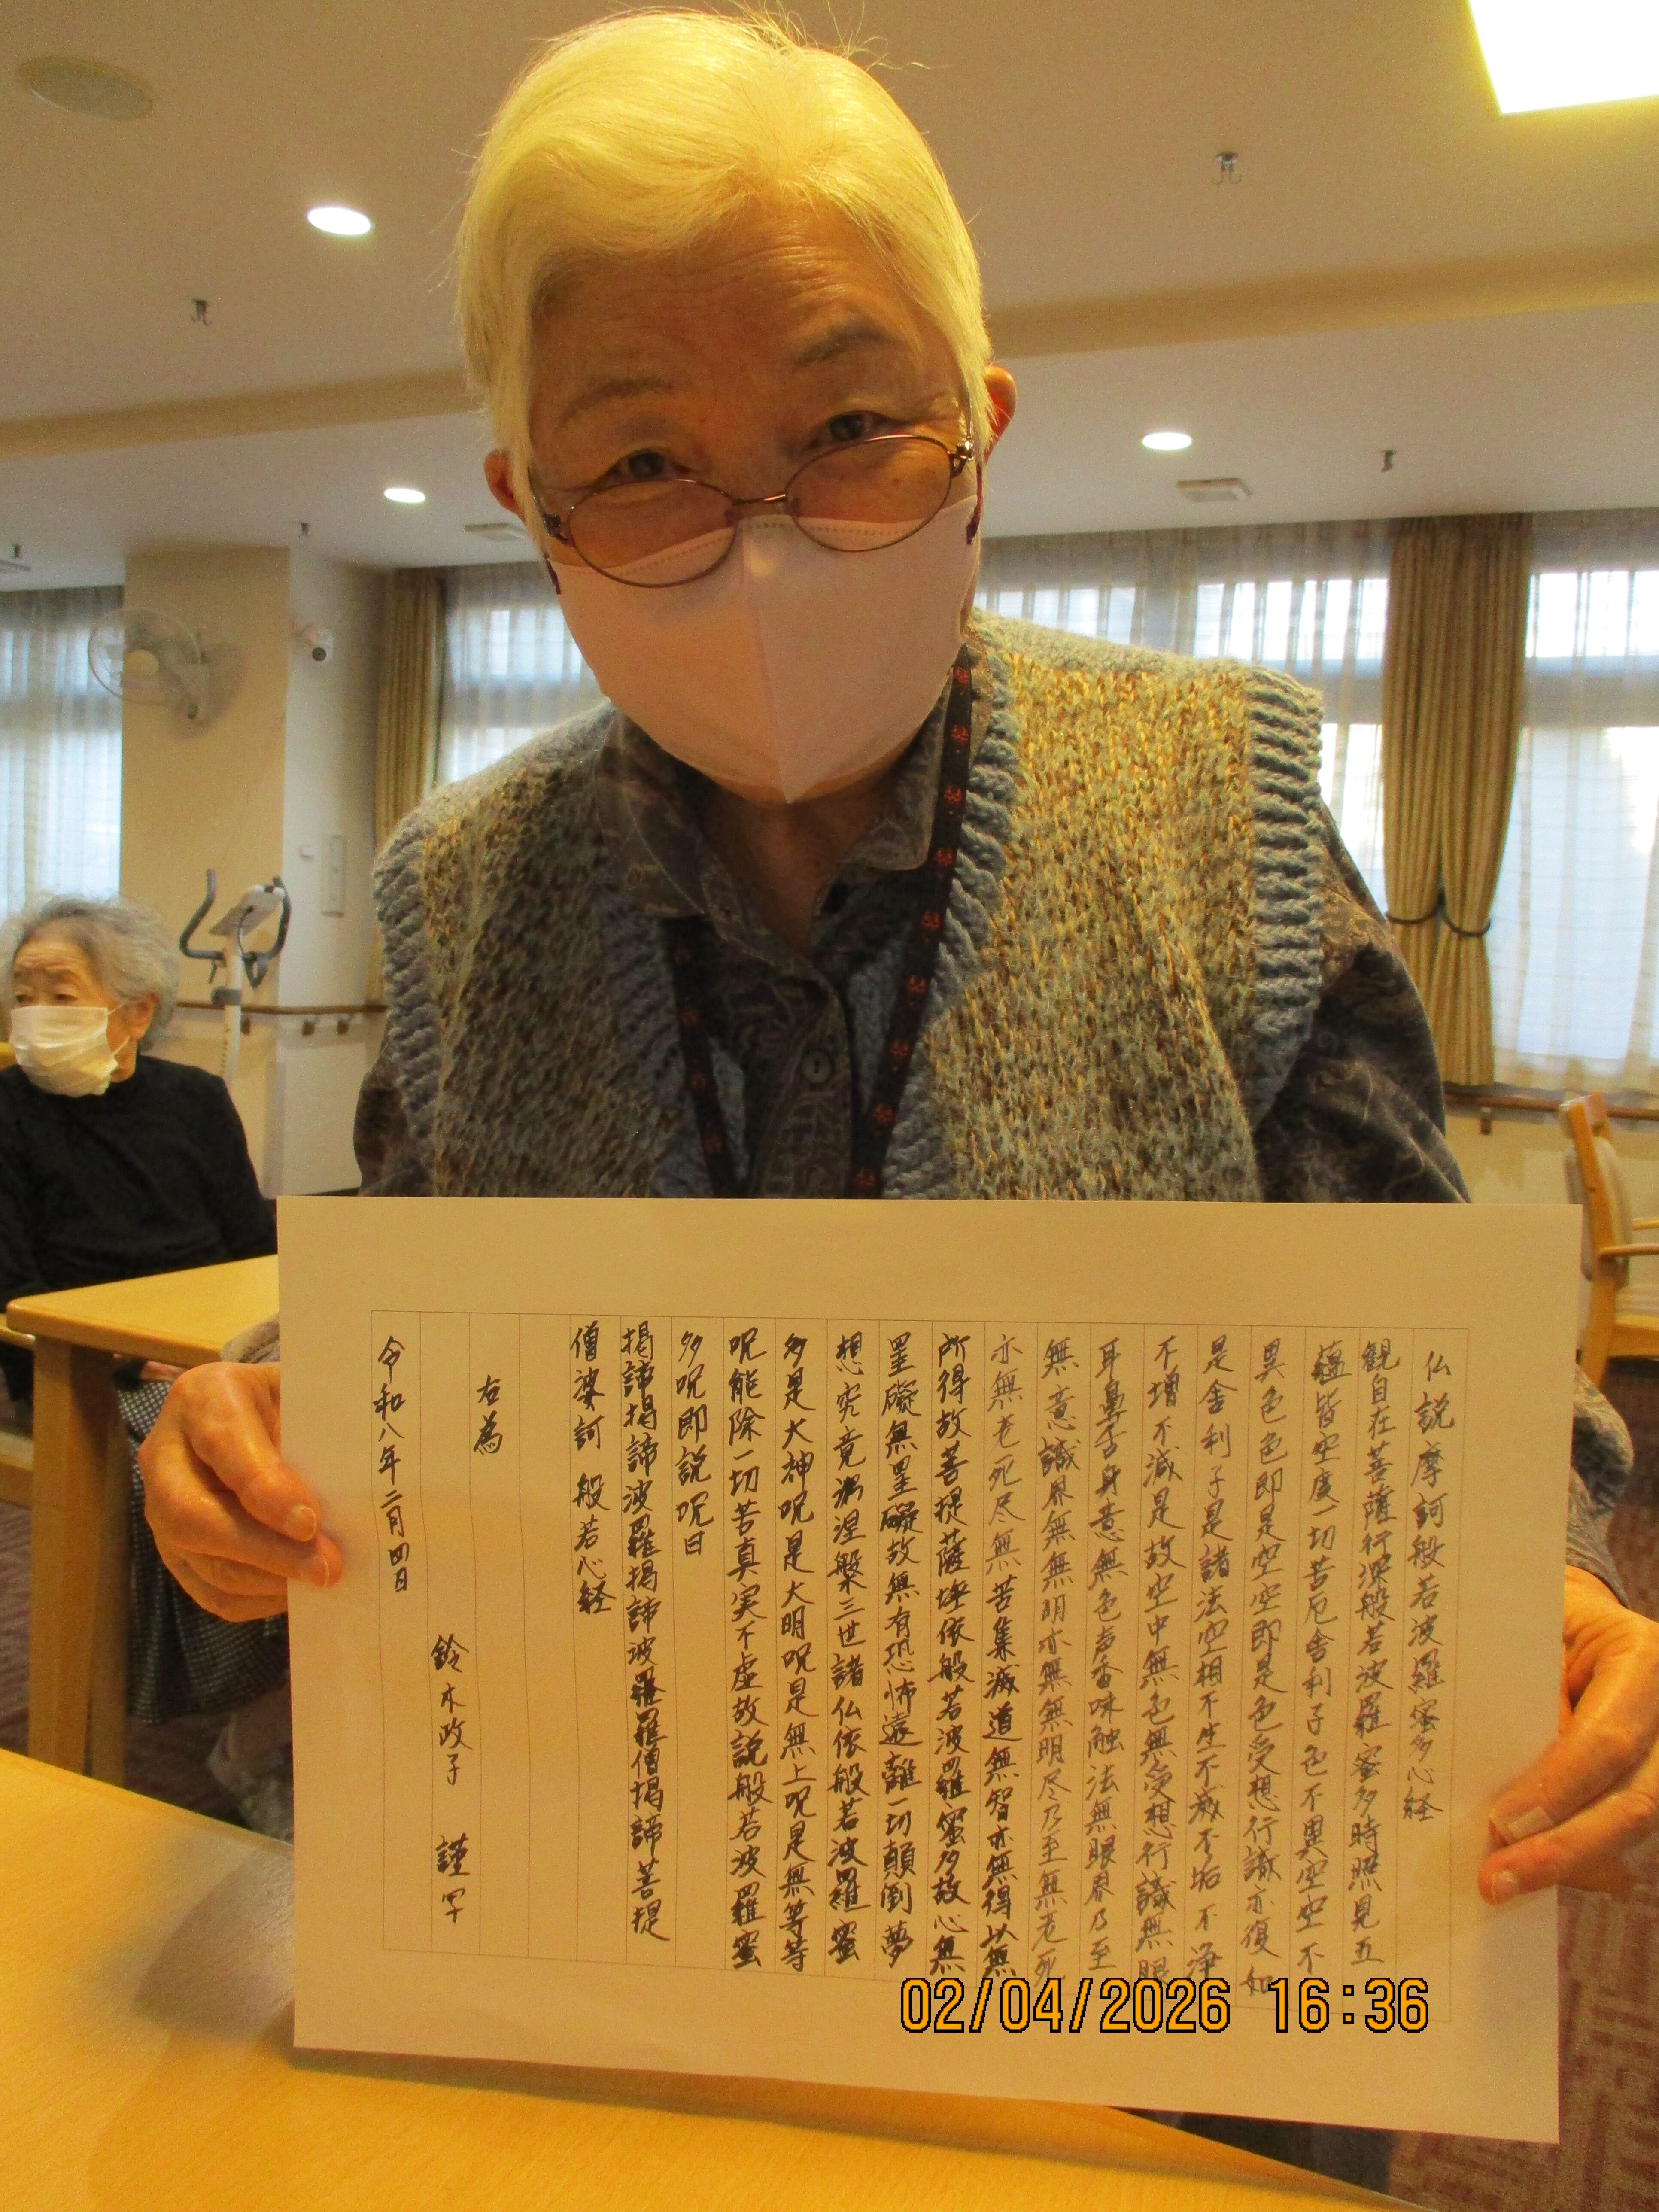 仏説摩訶般若波羅蜜多心経
観自在菩薩行深般若波羅蜜多時照見五
蘊皆空度一切苦厄舎利子色不異空空不
異色色即是空空即是色受想行識亦復如
是舎利子是諸法空相不生不滅不垢不浄
不増不減是故空中無色無受想行識無眼
耳鼻舌身意無色声香味触法無眼界乃至
無意識界無無明亦無無明尽乃至無老死
亦無老死尽無苦集滅道無智亦無得以無
所得故菩提薩埵依般若波羅蜜多故心無
罣礙無罣礙故無有恐怖遠離一切顛倒夢
想究竟涅槃三世諸仏依般若波羅蜜
多是大神呪是大明呪是無上呪是無等等
呪能除一切苦真実不虚故説般若波羅蜜
多呪即説呪曰
掲諦掲諦波羅掲諦波羅羅僧掲諦菩提
僧婆訶 般若心経
右為
鈴木政子 謹写
令和八年二月四日
02/04/2026 16:36